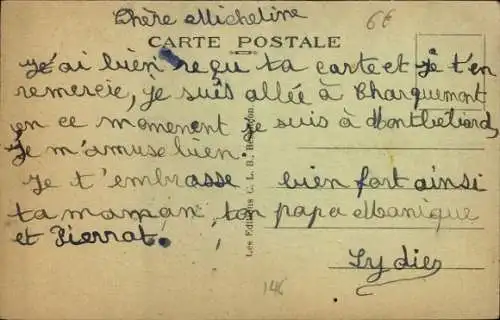 Chère Micheline
6€
CARTE POSTALE
J'ai bien reçu ta carte et je t'en
remercie, je suis allée à Charquemont
en ce momenent je suis à Montbeliard,
je m'amuse bien.
Je t'embrasse bien fort ainsi
ta maman, ton papa Monique
et Pierrot.
Lydie
Les Editions C. L. B., Besançon
146